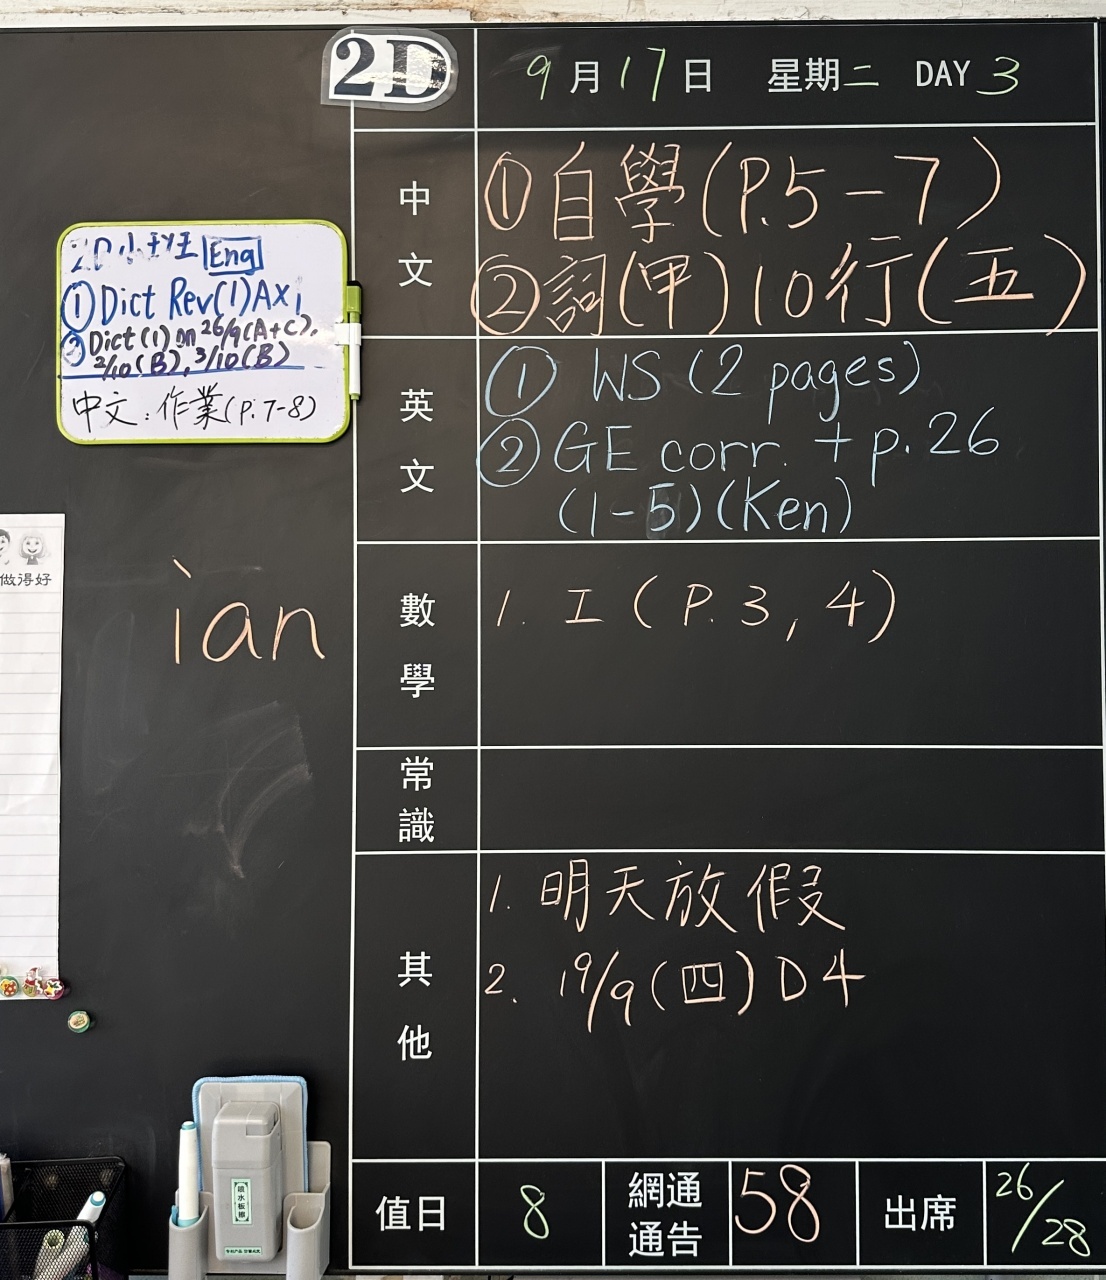 2D
9月17日 星期二 DAY 3
中文
①自學(P.5-7)
②詞(甲)10行(五)
英文
① WS (2 pages)
② GE corr. + p.26
(1-5)(Ken)
數學
1. 工(P.3, 4)
常識
其他
1. 明天放假
2. 19/9(四) D4
值日 8 網通通告 58 出席 26/28
2D小 Eng
① Dict Rev(1)Ax1
② Dict(1) on 26/9(A+C),
2/10(B), 3/10(B)
中文:作業(P.7-8)
做得好
ìan
噴水板擦